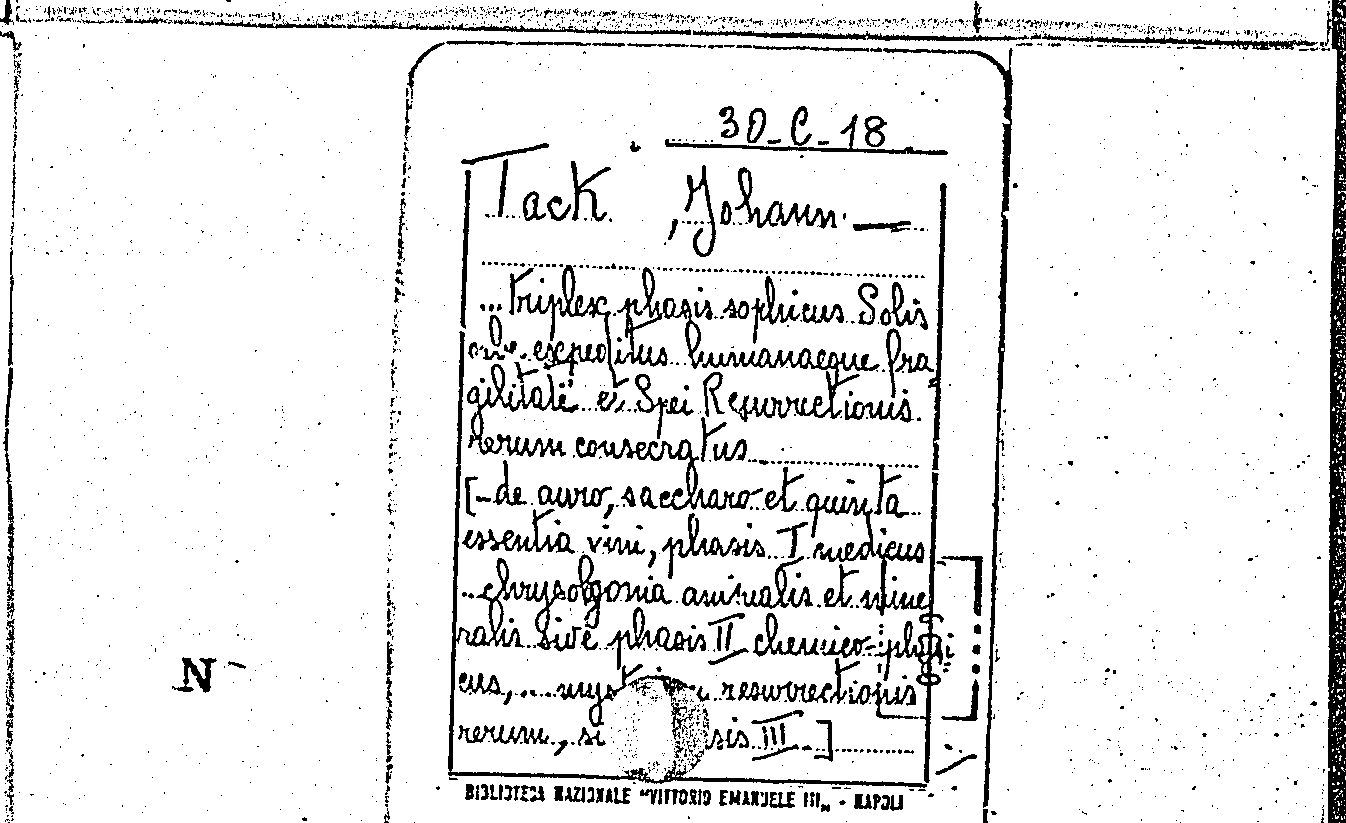 30-C-18
Tack , Johann.
...triplex phasis sophicus Solis
orbe expeditus humanaeque fra
gilitate et Spei Resurrectionis.
rerum consecratus
[-de auro, saccharo et quinta
essentia vini, phasis I medicus
...chrysolgonia animalis et mine
ralis sive phasis II chemico-phisi
cus, ... resurrectionis
rerum, III.]
BIBLIOTECA NAZIONALE "VITTORIO EMANUELE III„ - NAPOLI
N